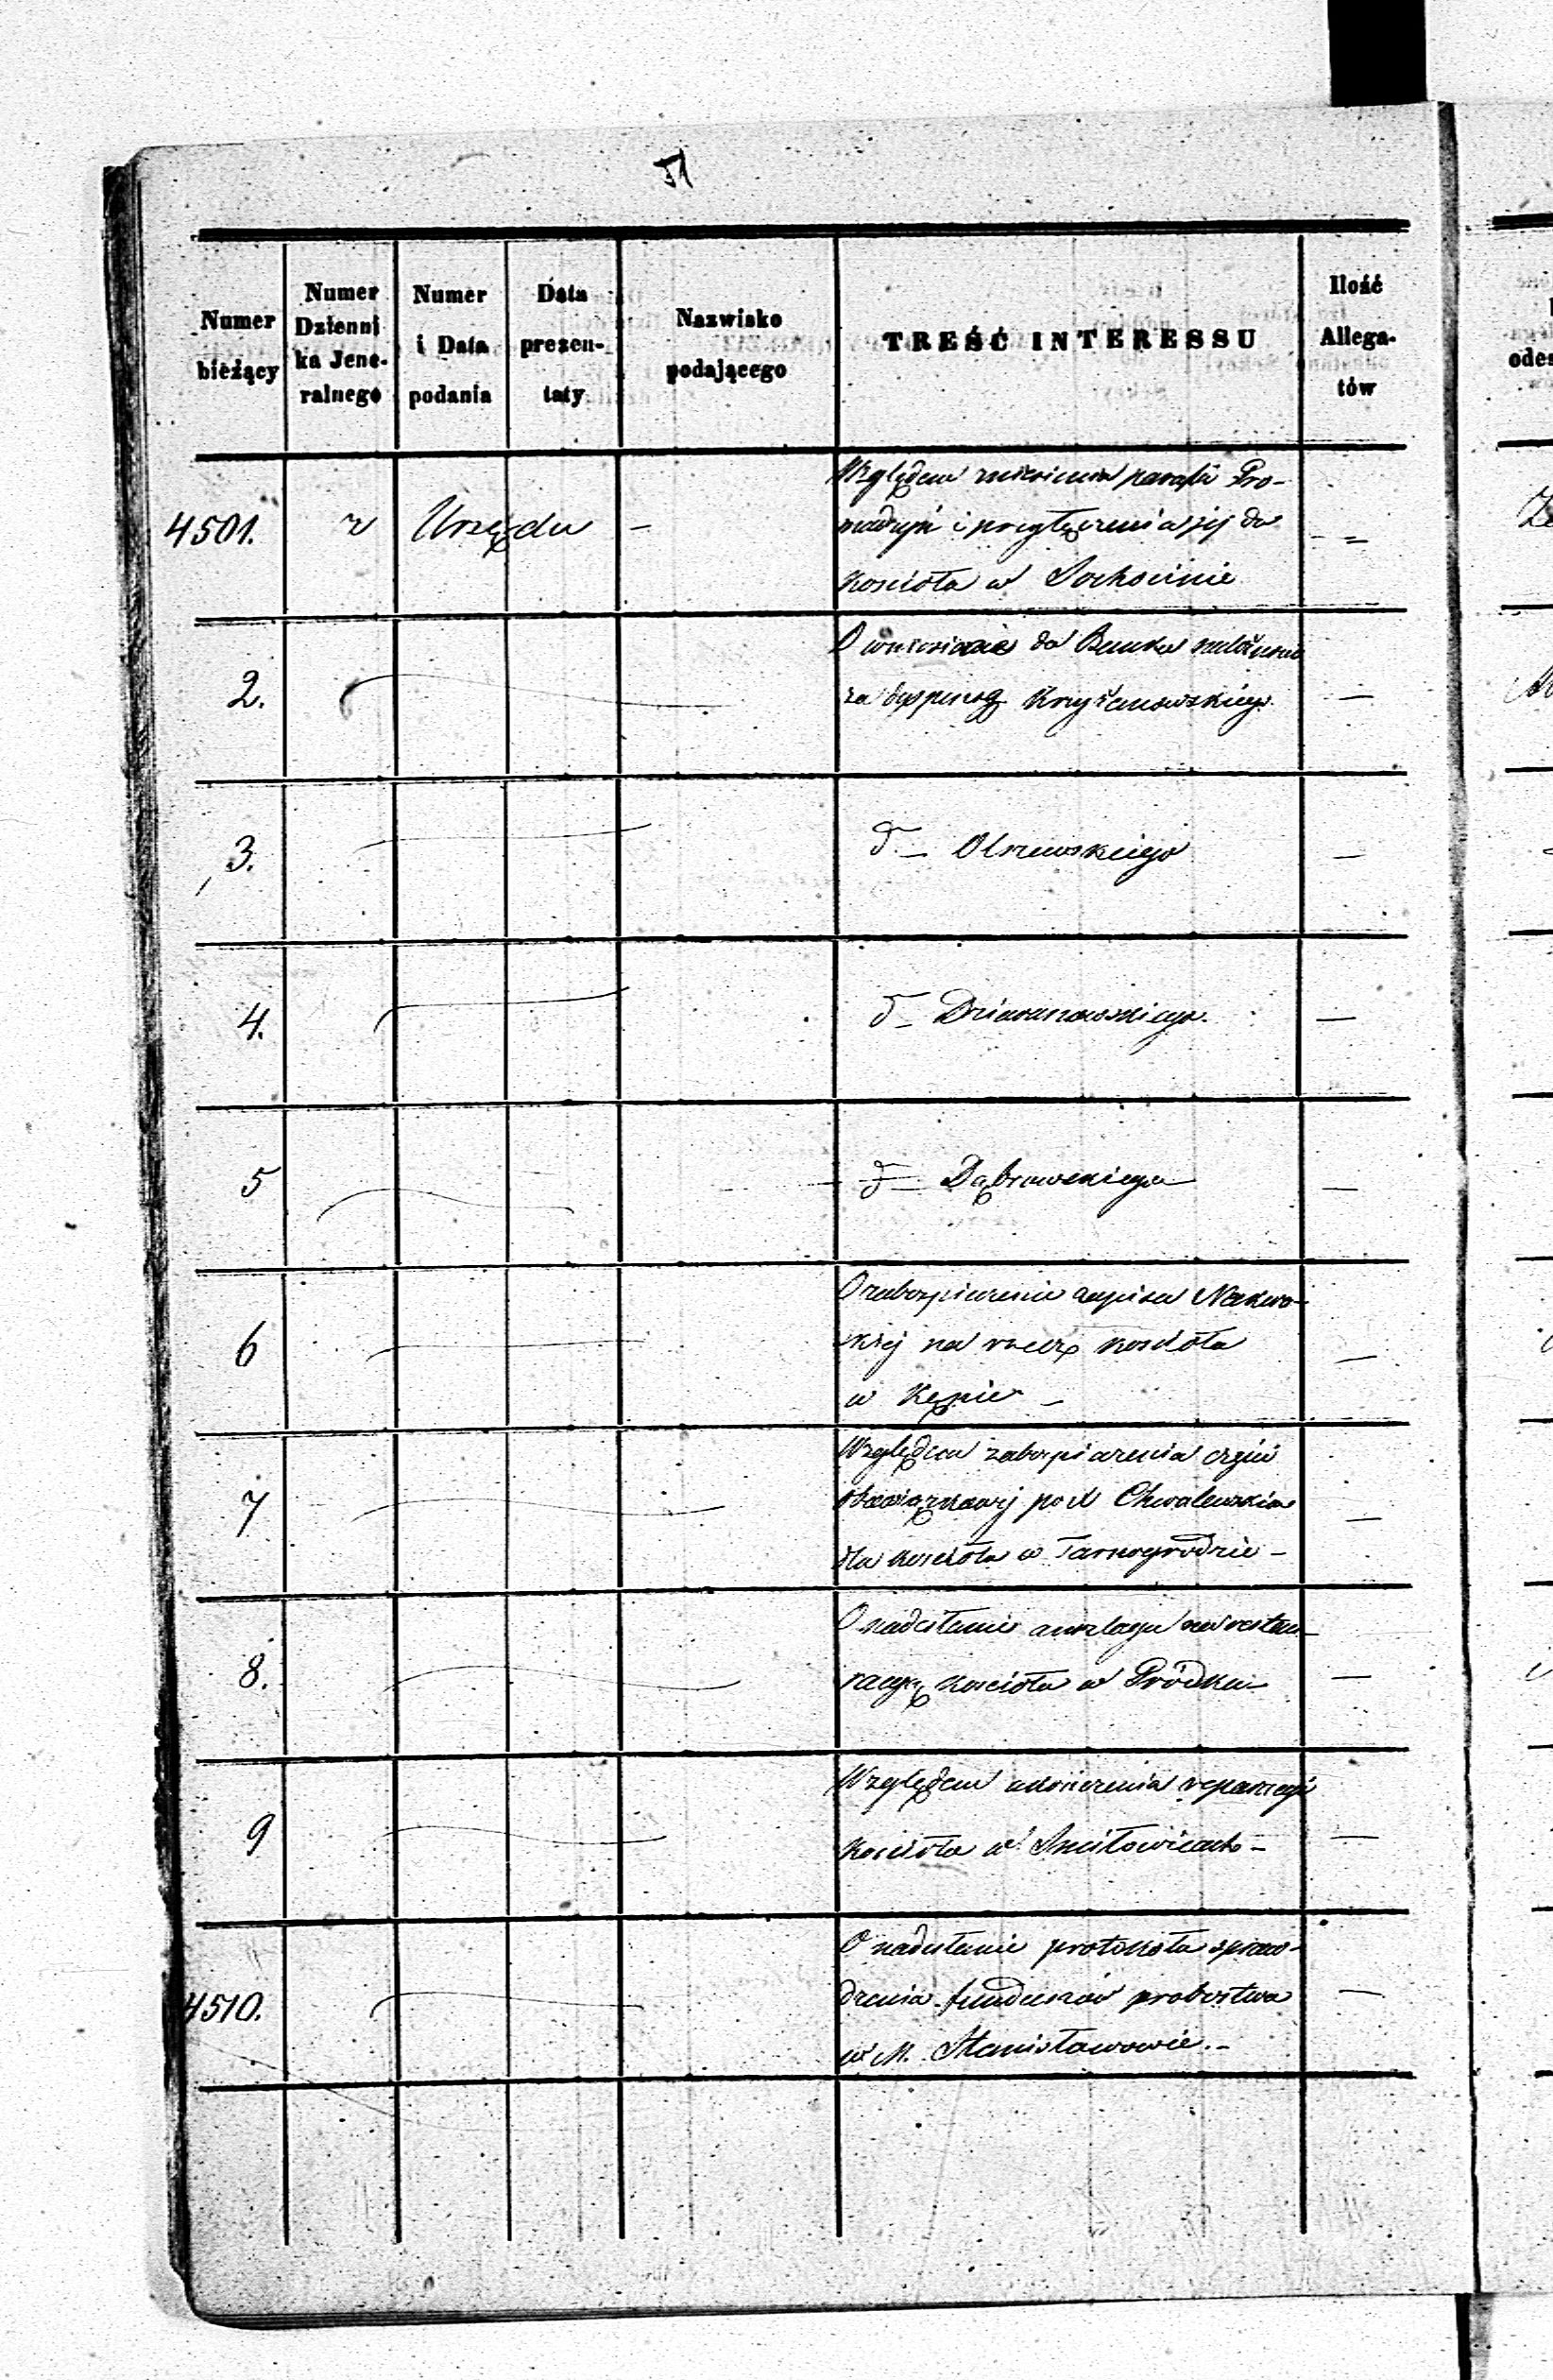 51
Numer bieżący
Numer Dzienni ka Jene- ralnego
Numer i Data podania
Data prezen- taty
Nazwisko podającego
TREŚĆ INTERESSU
Ilość Allega- tów
odes
4501. z Urzędu –
Względem zniesienia parafii Pro-
i przyłączenia jej do
Kościoła w Sochocinie
2.
O wniesienie do Banku
za Krzyżanowskiego
3.
d. – Olszewskiego
4.
d – Dziewanowskiego.
5
d – Dąbrowskiego
6
O zabezpieczenie zapisu Nakwa-
skiej na rzecz Kościoła
w Kępie –
7
Względem zabezpieczenia części
pod
dla Kościoła w Tarnogrodzie –
8.
O nadesłanie anszlagu na restau-
racyą Kościoła w
9
Względem ukończenia reparacyi
Kościoła w
4510.
O nadesłanie protokołu spraw-
dzenia funduszów probostwa
w M. Stanisławowie. –